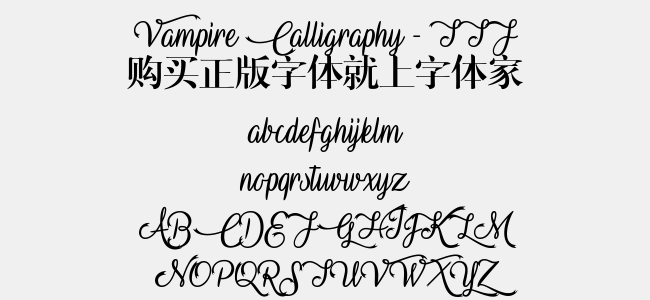 Vampire Calligraphy - TTF
购买正版字体就上字体家
abcdefghijklm
nopqrstuvwxyz
ABCDEFGHIJKLM
NOPQRSTUVWXYZ